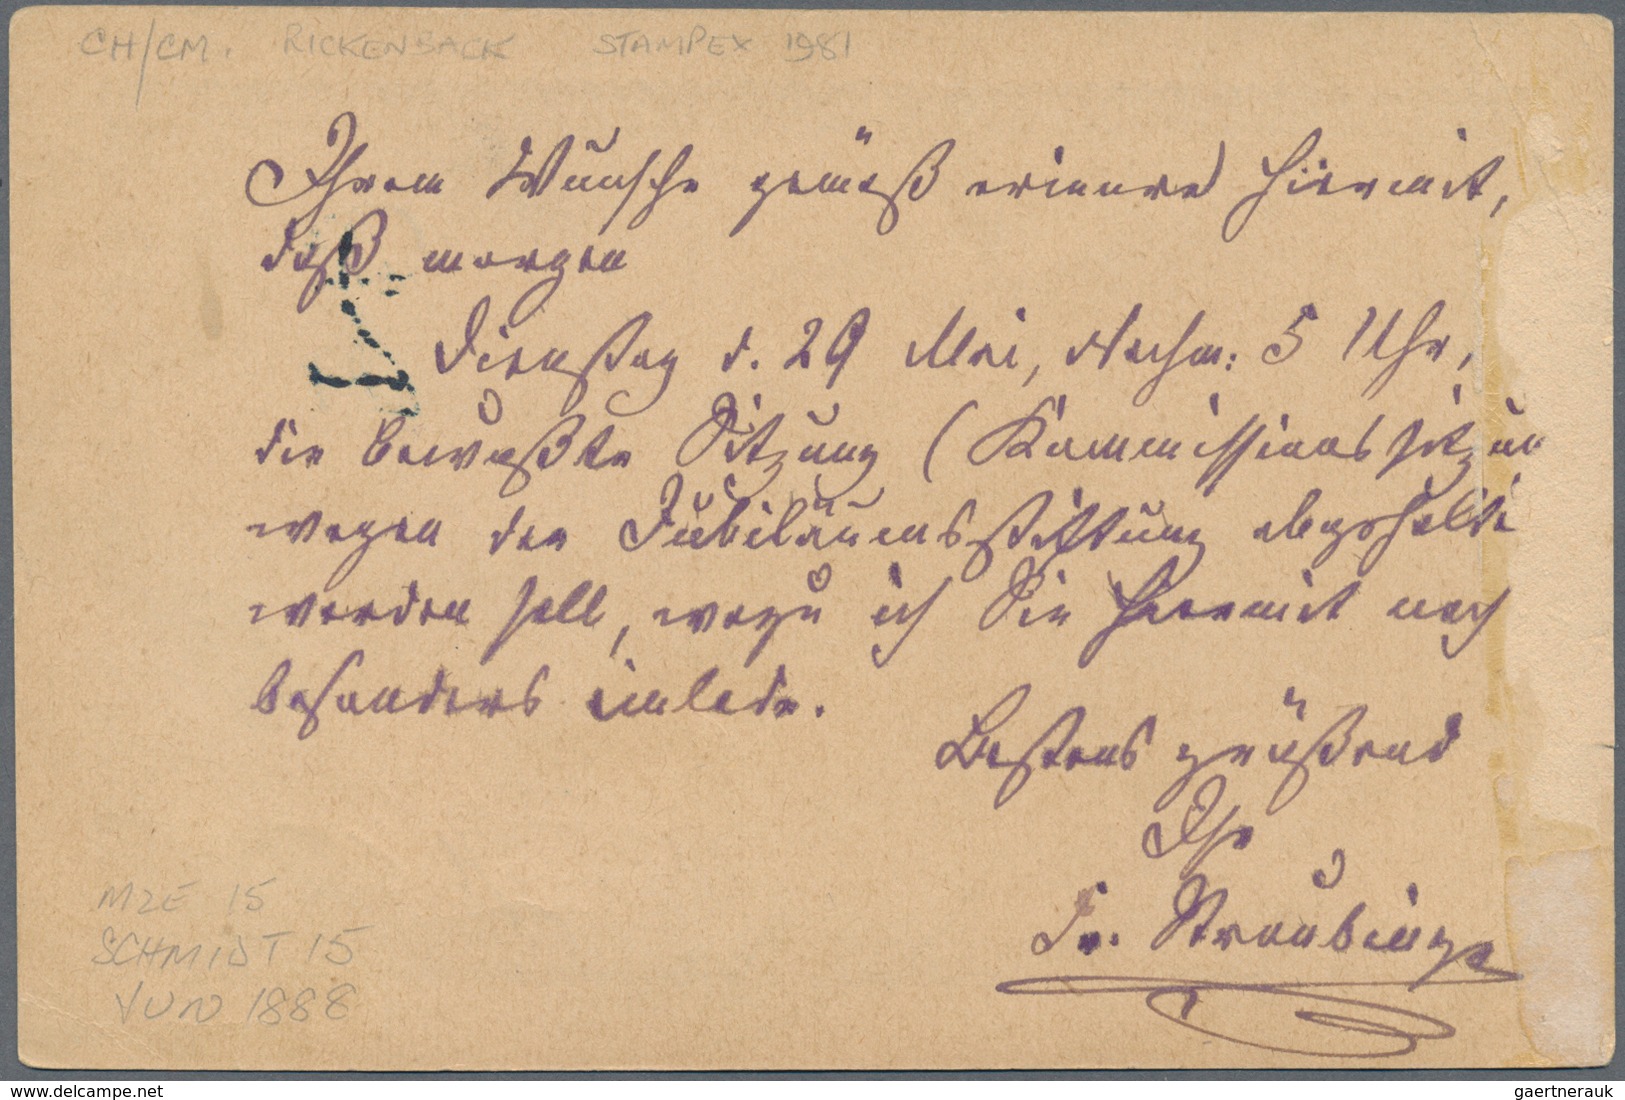 CH/CM. RICKENBACK STAMPEX 1981
Ihrem Wunsche gemäß erinnere hiermit,
daß morgen
Dienstag d. 29 Mai, Nachm: 5 Uhr,
die bewußte Sitzung (Kommissionssitzun
wegen der Jubiläumsstiftung abgehalte
werden soll, wozu ich Sie hiermit noch
besonders einlade.
Bestens grüßend
Ihr
Fr. Straubinge
MZE 15
SCHMIDT 15
VUN 1888
www.delcampe.net
gaertnerauk